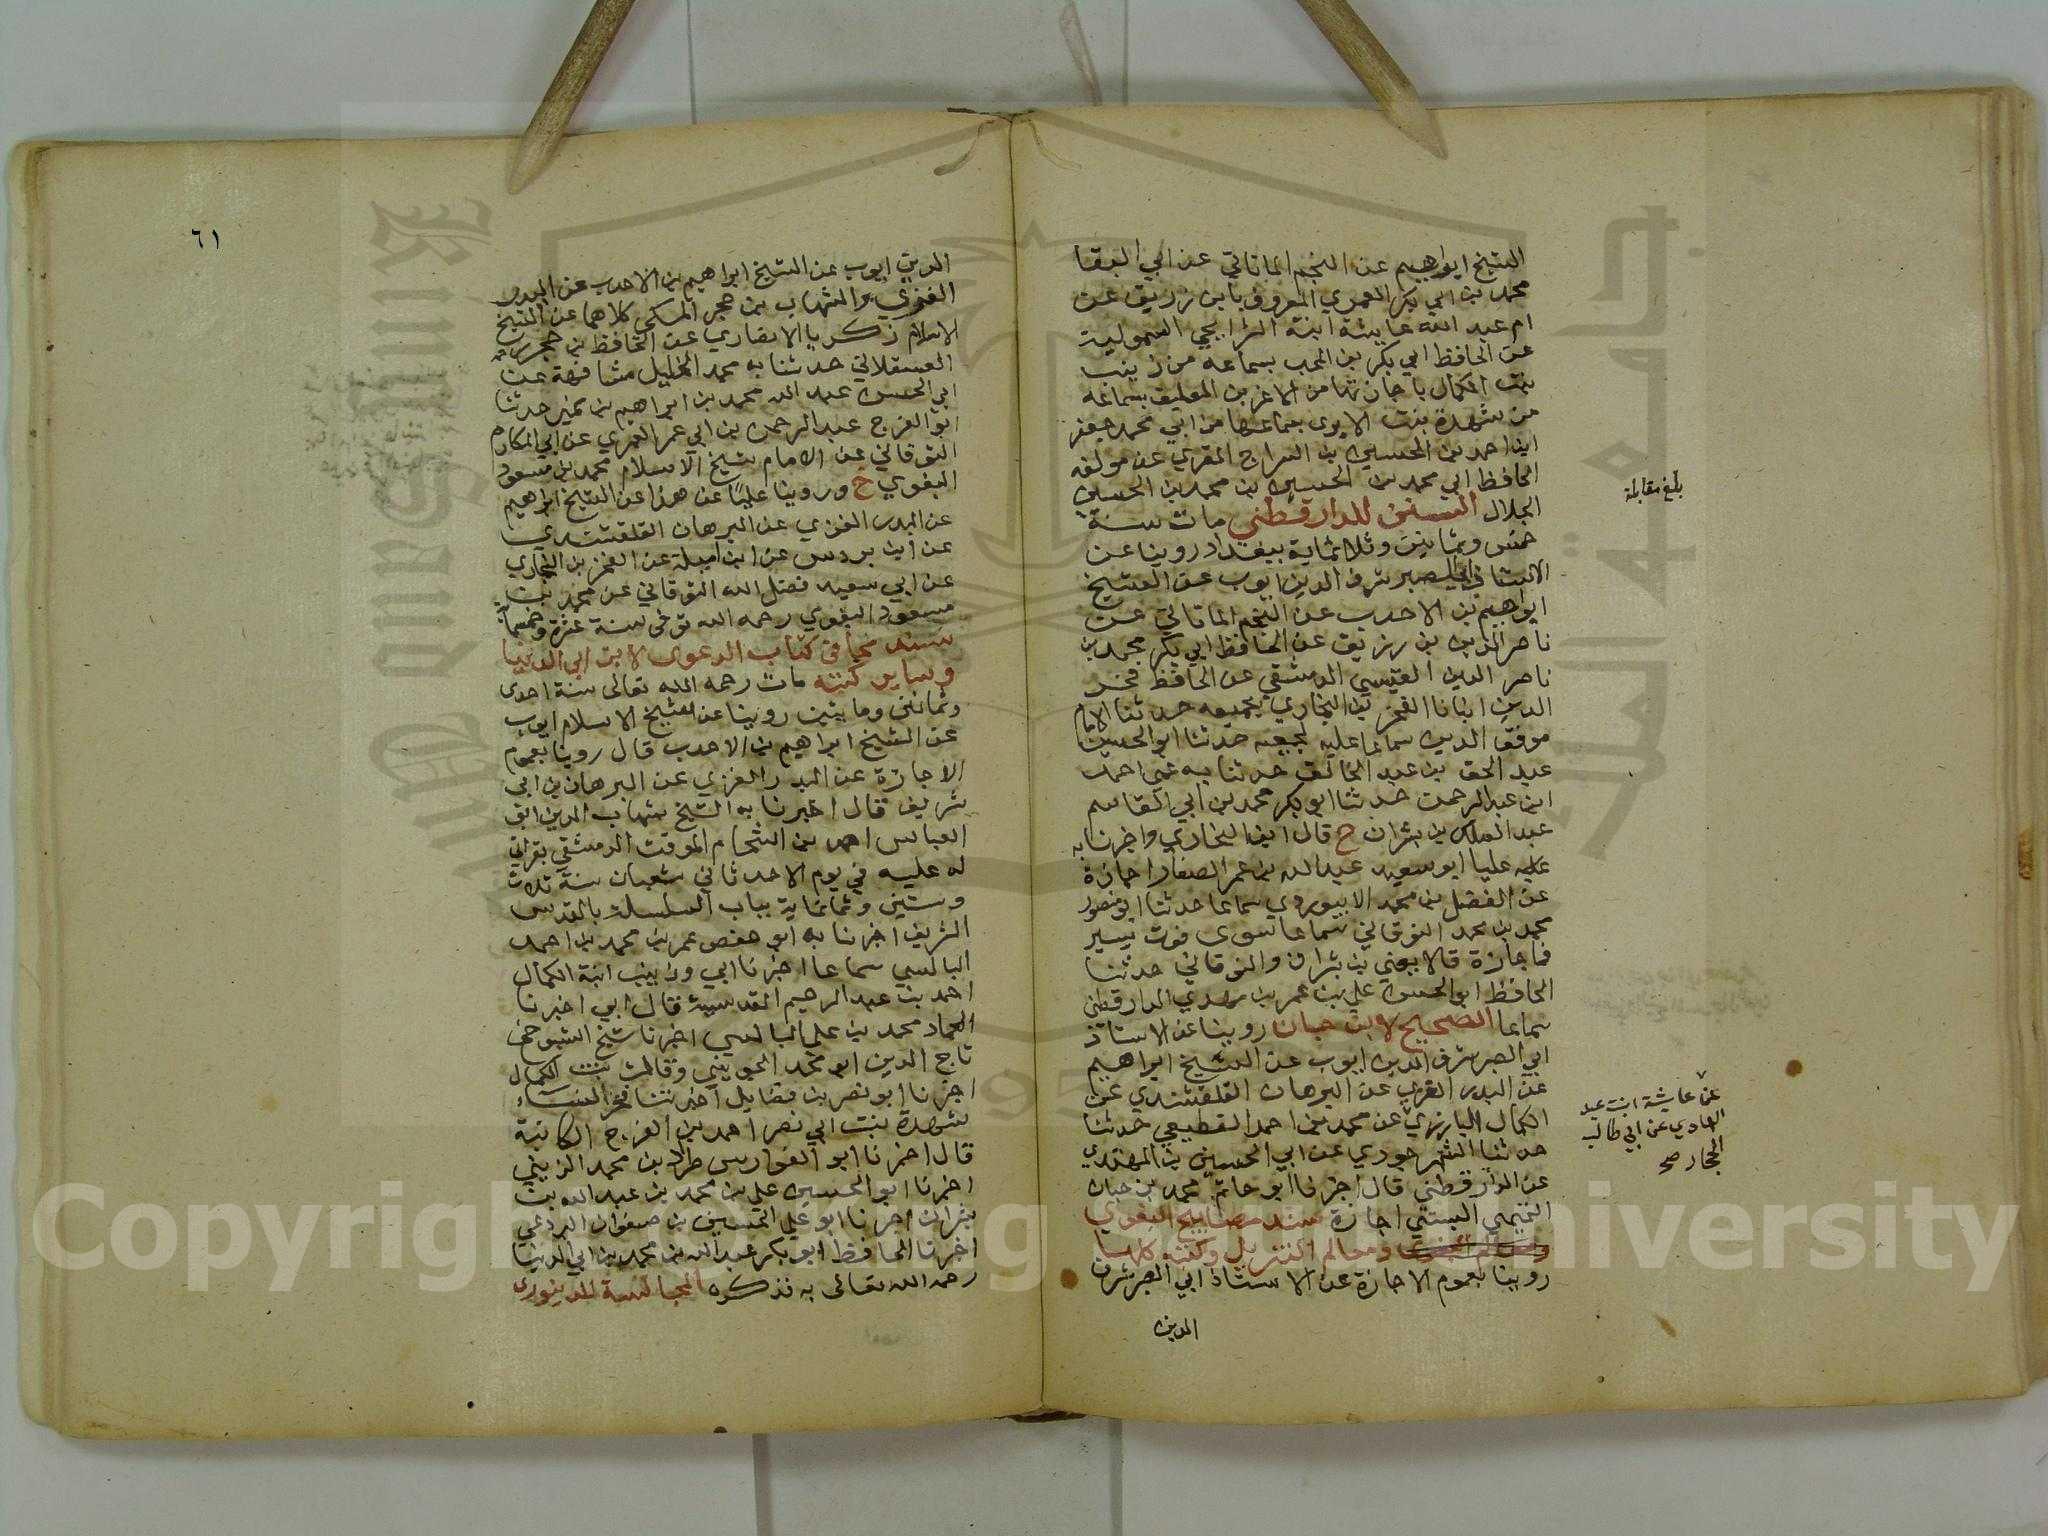 الشيخ ابراهيم عن النجم الماتاتي عن ابي البقا
محمد بن ابي بكر العمري المعروف بابن زريق عن
ام عبد الله عايشة ابنة الشرايحي السمولية
عن الحافظ ابي بكر بن المحب بسماعه من زينب
بنت الكمال باجازتها من الاعز بن العليق بسماعه
من شهدة بنت الابوي بسماعها من ابي محمد جعفر
ابن احمد بن الحسين بن السراج المقري عن مولفه
الحافظ ابي محمد بن الحسين بن محمد بن الحسين
الجلال السنن للدارقطني مات سنة
خمس وثمانين وثلاثماية ببغداد روينا عن
الاستاذ ابي الصبر شرف الدين ايوب عن الشيخ
ابراهيم بن الاحدب عن النجم الماتاتي عن
ناصر الدين بن رزيق عن الحافظ ابي بكر محمد بن
ناصر الدين القيسي الدمشقي عن الحافظ فخر
الدين انبانا الفخر بن البخاري بجميعه حدثنا الامام
موفق الدين سماعا عليه لجميعه حدثنا ابو الحسين
عبد الحق بن عبد الخالق حدثنا به عمي احمد
ابن عبد الرحمن حدثنا ابو بكر محمد بن ابي القاسم
عبد الملك بن بشران ح قال ابن البخاري واخبرنا به
عليه عليا ابو سعيد عبد الله بن عمر الصفار اجازة
عن الفضل بن محمد الابيوردي سماعا حدثنا ابو منصور
محمد بن محمد النوقاني سماعا سوى فوت يسير
فاجازة قالا يعني بن بشران والنوقاني حدثنا
الحافظ ابو الحسن علي بن عمر بن مهدي الدارقطني
سماعا الصحيح لابن حبان روينا عن الاستاذ
ابي الصبر شرف الدين ايوب عن الشيخ ابراهيم
عن البدر الغزي عن البرهان القلقشندي عن
الكمال البارزي عن محمد بن احمد القطيعي حدثنا
حدثنا الشهرجوري عن ابي الحسين بن المهتدي
عن الدارقطني قال اخبرنا ابو حاتم محمد بن حبان
التميمي البستي اجازة سند مصابيح البغوي
ومعالم التنزيل وكتبه كلها
روينا بعموم الاجازة عن الاستاذ ابي الصبر شرف
الدين
بلغ مقابلة
عن عايشة ابنت عبد
الهادي عن ابي طالب
الحجار صح
٦١
الدين ايوب عن الشيخ ابراهيم بن الاحدب عن البدر
الغزي والشهاب بن حجر المكي كلاهما عن الشيخ
الاسلام زكريا الانصاري عن الحافظ بن حجر
العسقلاني حدثنا به محمد الخليل مشافهة عن
ابي الحسن عبد الله محمد بن ابراهيم بن نمير حدثنا
ابو الفرج عبد الرحمن بن ابي عمر العمري عن ابي المكارم
النوقاني عن الامام شيخ الاسلام محمد بن مسعود
البغوي ح وروينا عليا عن هذا عن الشيخ ابراهيم
عن البدر الغزي عن البرهان القلقشندي
عن ابن بردس عن ابن اميلة عن الفخر بن البخاري
عن ابي سعيد فضل الله النوقاني عن محمد بن
مسعود البغوي رحمه الله توفى سنة عشرة وخمسماية
سند كتاب الدعوى لابن ابي الدنيا
وساير كتبه مات رحمه الله تعالى سنة احدى
وثمانين ومايتين روينا عن شيخ الاسلام ايوب
عن الشيخ ابراهيم بن الاحدب قال روينا بعموم
الاجازة عن البدر الغزي عن البرهان بن ابي
شريف قال اخبرنا به الشيخ شهاب الدين ابو
العباس احمد بن الشحام الموقت الدمشقي بقراتي
له عليه في يوم الاحد ثاني شعبان سنة ثلاث
وستين وثمانماية بباب السلسلة بالقدس
الشريف اخبرنا به ابو حفص عمر بن محمد بن احمد
البالسي سماعا اخبرنا ابي وزينب ابنة الكمال
احمد بن عبد الرحيم المقدسية قال ابي اخبرنا
العماد محمد بن علي البالسي اخبرنا شيخ الشيوخ
تاج الدين ابو محمد الجويني وقالت بنت الكمال
اخبرنا ابو نصر بن فضايل اخبرتنا فخر النساء
شهدة بنت ابي نصر احمد بن الفرج الكاتبة
قال اخبرنا ابو الفوارس طراد بن محمد الزينبي
اخبرنا ابو الحسين علي بن محمد بن عبد الله بن
بشران اخبرنا ابو علي الحسين بن صفوان البردعي
اخبرنا الحافظ ابو بكر عبد الله بن محمد بن ابي الدنيا
رحمه الله تعالى به فذكره المجالسة للدينوري
Copyright © King Saud University
جامعة الملك
1957